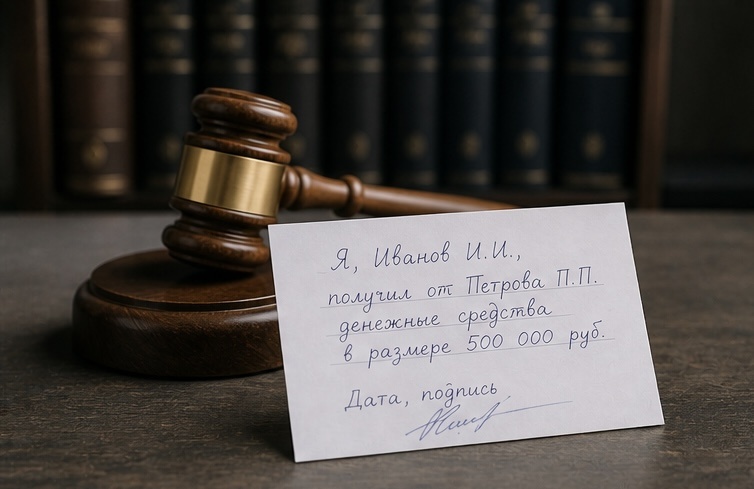 Я, Иванов И.И.,
получил от Петрова П.П.
денежные средства
в размере 500 000 руб.
Дата, подпись